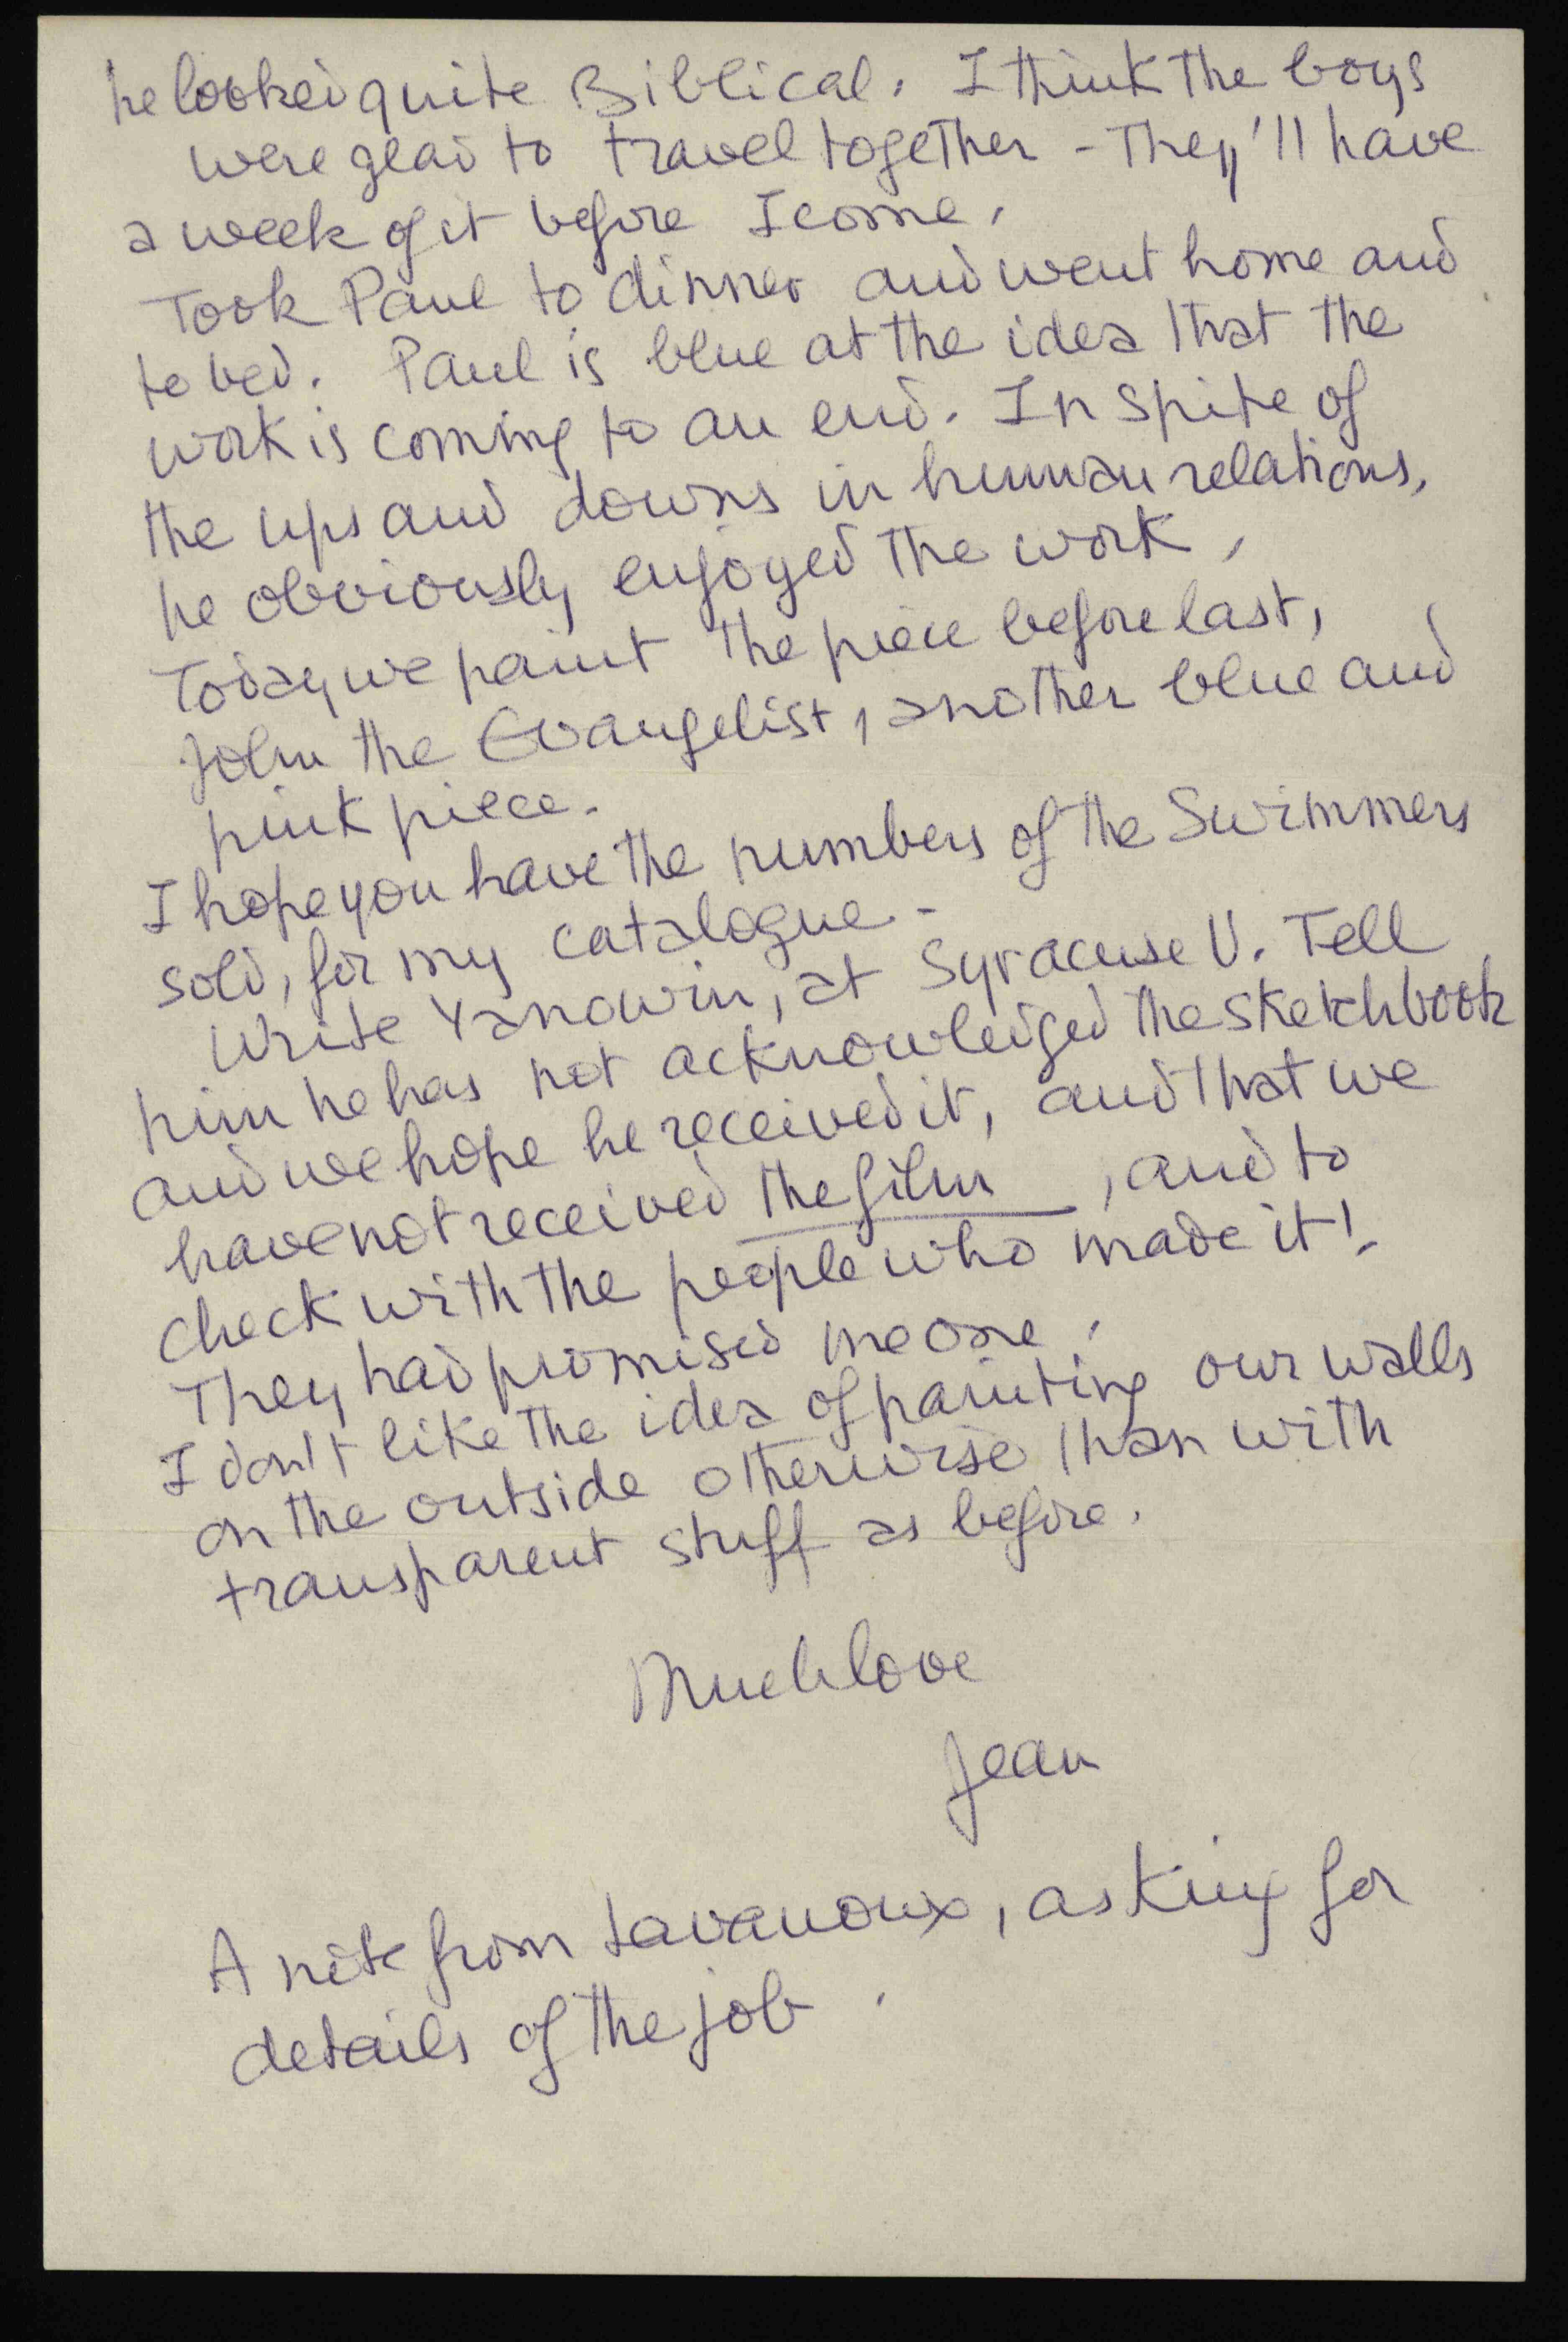 he looked quite Biblical. I think the boys
were glad to travel together - They'll have
a week of it before I come.
Took Paul to dinner and went home and
to bed. Paul is blue at the idea that the
work is coming to an end. In spite of
the ups and downs in human relations,
he obviously enjoyed the work.
Today we paint the piece before last,
John the Evangelist, another blue and
pink piece.
I hope you have the numbers of the Swimmers
sold, for my catalogue -
Write Yanowin, at Syracuse U. Tell
him he has not acknowledged the sketchbook
and we hope he received it, and that we
have not received the film, and to
check with the people who made it!
They had promised me one.
I don't like the idea of painting our walls
on the outside otherwise than with
transparent stuff as before.
Much love
Jean
A note from Lavanoux, asking for
details of the job.